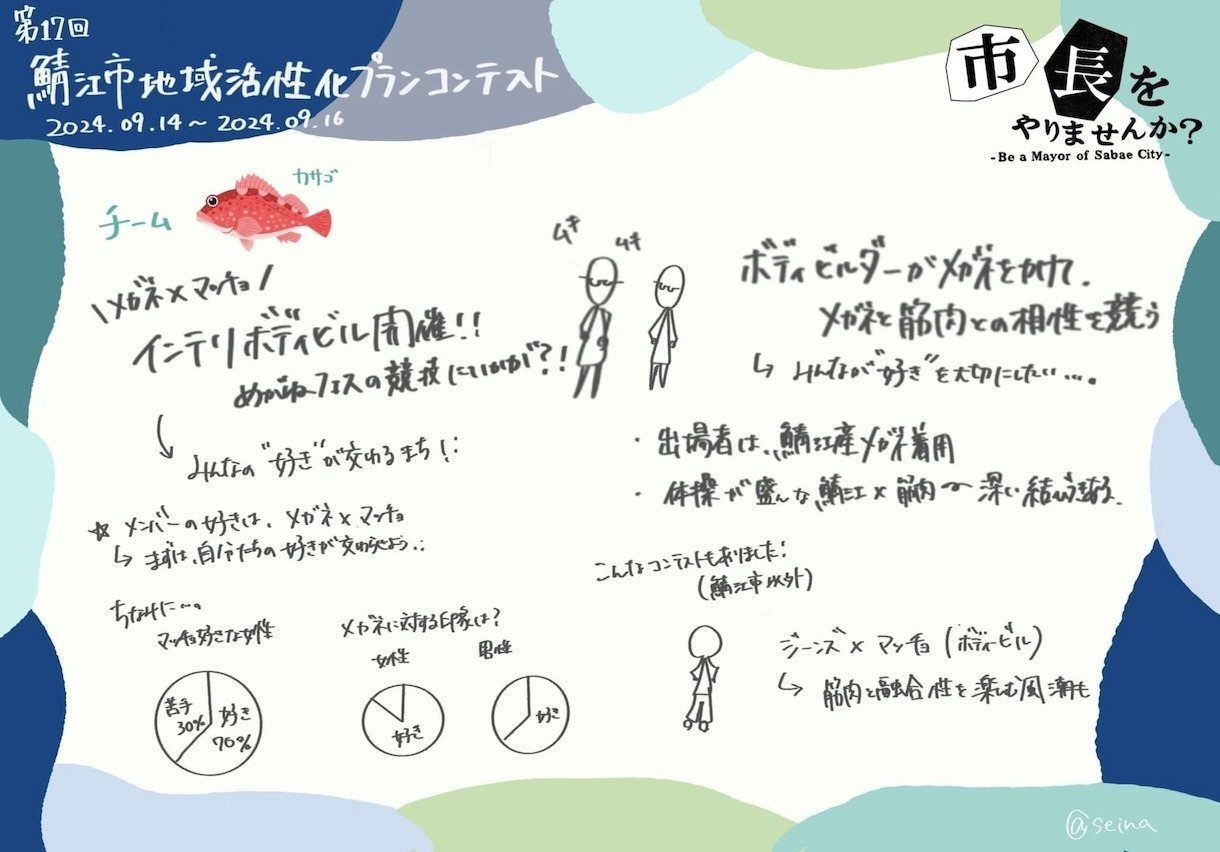 第17回
鯖江市地域活性化プランコンテスト
2024.09.14～2024.09.16
市長を
やりませんか?
-Be a Mayor of Sabae City-
チーム
カサゴ
\メガネ×マッチョ/
インテリボディビル開催!!
めがねフェスの競技にいかが?!
みんなの"好き"が交わるまち!
☆メンバーの好きは、メガネ×マッチョ
↳まずは、自分たちの好きが交わらせよう
ちなみに…。
マッチョ好きな女性
苦手
30%
好き
70%
メガネに対する印象は?
女性
男性
好き
好き
ムキ
ムキ
ボディビルダーがメガネをかけて、
メガネと筋肉との相性を競う
↳みんなが"好き"を大切にしたい…。
・出場者は、鯖江産メガネ着用
・体操が盛んな鯖江×筋肉〜深い結び
こんなコンテストもありました!
(鯖江市以外)
ジーンズ×マッチョ(ボディービル)
↳筋肉と融合性を楽しむ風潮も
@seina